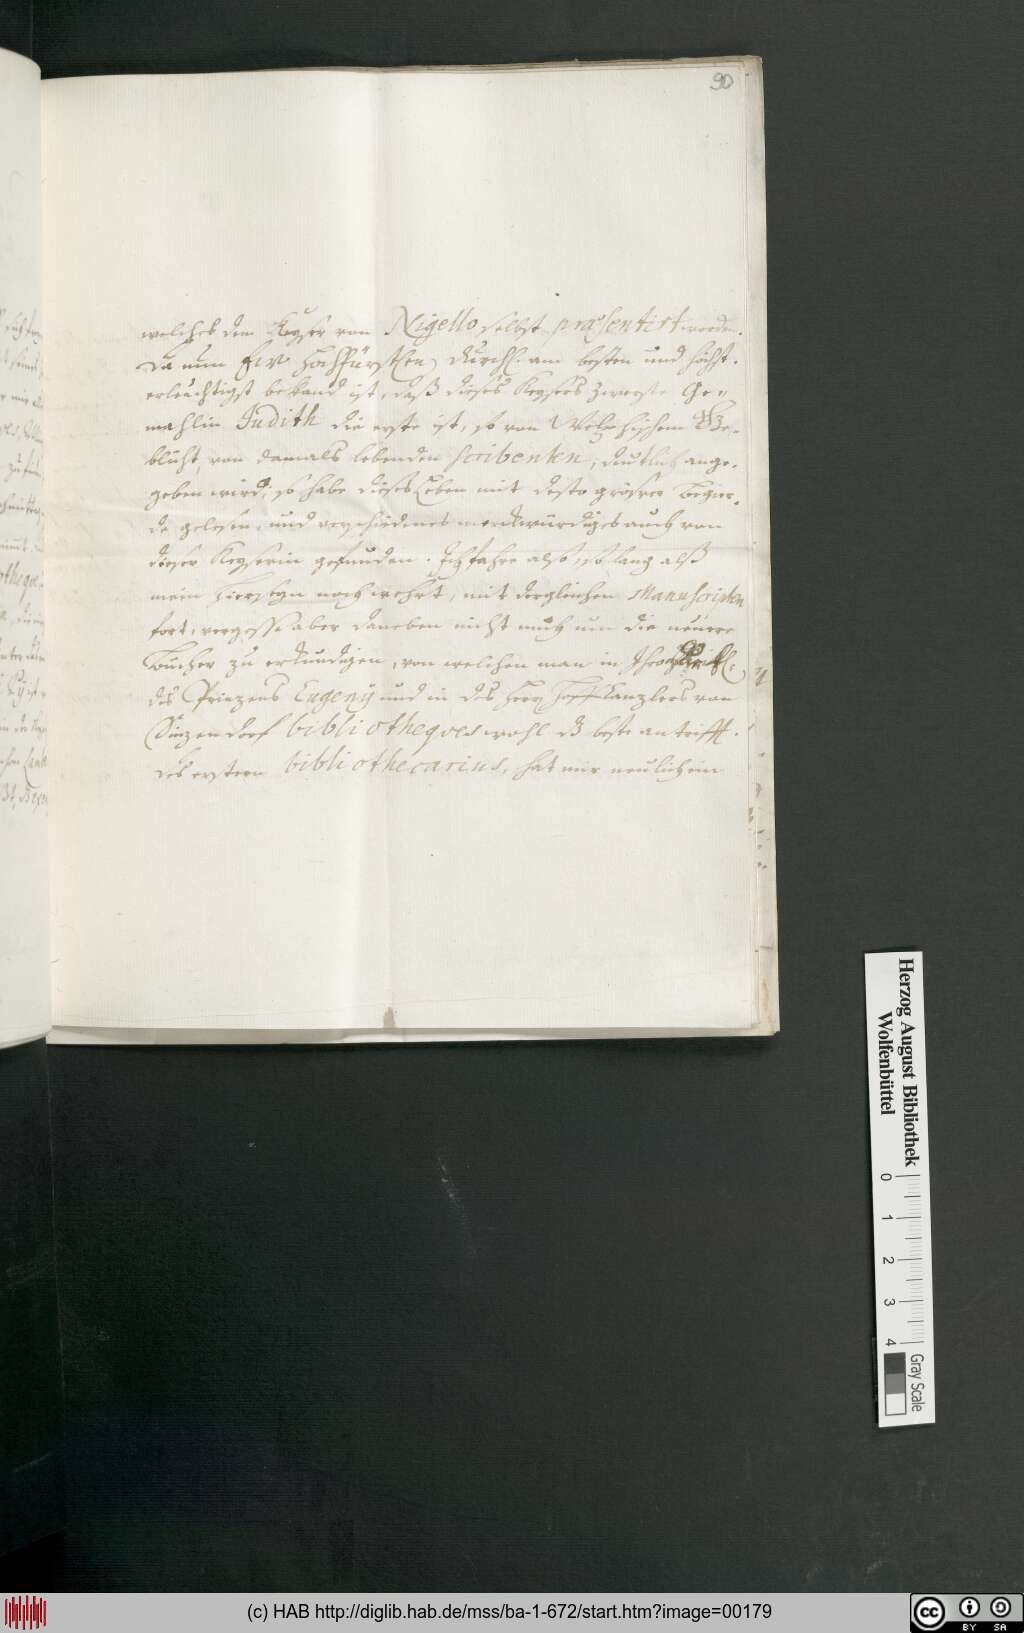 90
welches dem Keyser von Nigello selbst præsentirt worden.
Da nun Ew Hochfürstlen Durchl. am besten und höchst-
erleuchtigst bekand ist, daß dieses Keysers zweyte Ge-
mahlin Judith die erste ist, so von Welphischem Ge-
blüht, von damals lebenden Scribenten, deutlich ange-
geben wird; so habe dieses Leben mit desto grösrer Begier-
de gelesen, und verschiedenes merckwürdiges auch von
dieser Keyserin gefunden. Ich fahre also, so lang alß
mein Hierseyn noch wehrt, mit dergleichen Manuscripten
fort, vergesse aber daneben nicht mich um die neuere
Bücher zu erkundigen, von welchen man in
des Prinzens Eugenij und in des Herrn Hoffkanzlers von
Sinzendorf bibliotheqves wohl dz beste antrifft.
des erstern bibliothecarius, hat mir neulich ein
Herzog August Bibliothek
Wolfenbüttel
0 1 2 3 4
Gray Scale
(c) HAB http://diglib.hab.de/mss/ba-1-672/start.htm?image=00179
cc BY SA